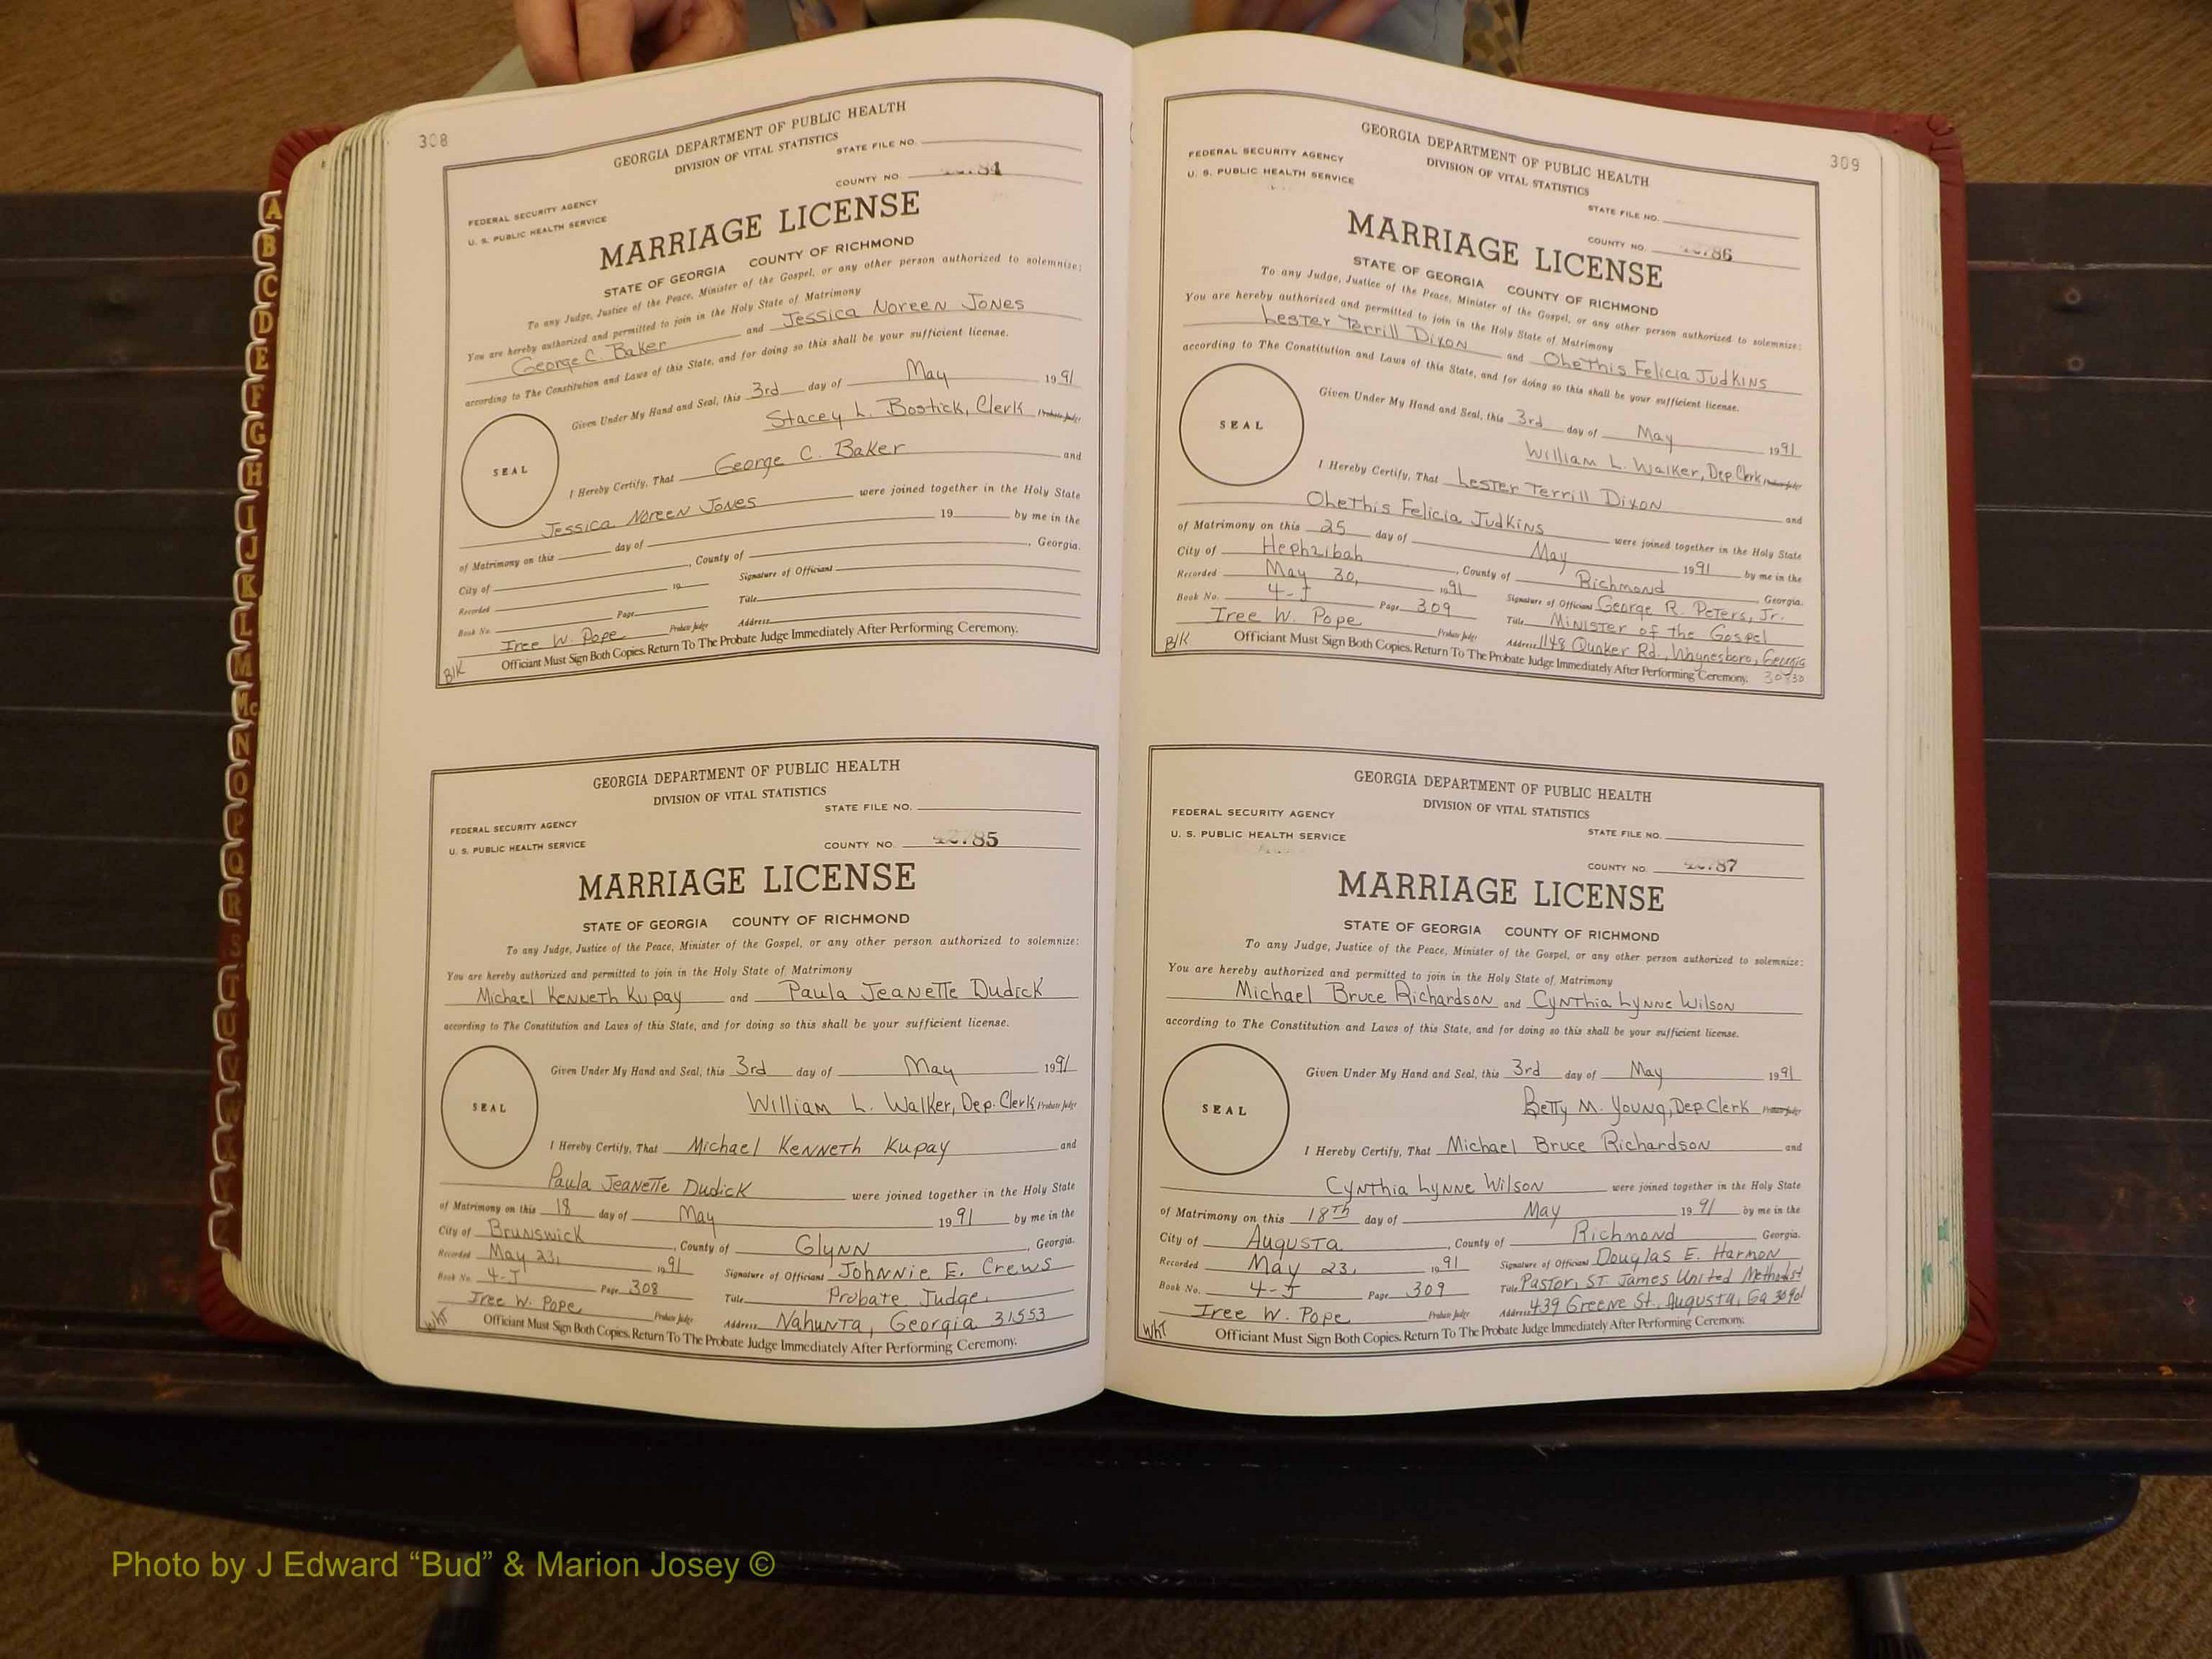 308
GEORGIA DEPARTMENT OF PUBLIC HEALTH
DIVISION OF VITAL STATISTICS
STATE FILE NO.
COUNTY NO. 84
FEDERAL SECURITY AGENCY
U. S. PUBLIC HEALTH SERVICE
MARRIAGE LICENSE
STATE OF GEORGIA COUNTY OF RICHMOND
To any Judge, Justice of the Peace, Minister of the Gospel, or any other person authorized to solemnize:
You are hereby authorized and permitted to join in the Holy State of Matrimony
George C. Baker and Jessica Noreen Jones
according to The Constitution and Laws of this State, and for doing so this shall be your sufficient license.
Given Under My Hand and Seal, this 3rd day of May 1991
Stacey L. Bostick, Clerk Probate Judge
SEAL
I Hereby Certify, That George C. Baker and
Jessica Noreen Jones were joined together in the Holy State
of Matrimony on this day of 19 by me in the
City of , County of , Georgia.
Recorded 19 Signature of Officiant
Book No. Page Title
Iree W. Pope Probate Judge Address
B/K Officiant Must Sign Both Copies. Return To The Probate Judge Immediately After Performing Ceremony.
GEORGIA DEPARTMENT OF PUBLIC HEALTH
DIVISION OF VITAL STATISTICS
STATE FILE NO.
FEDERAL SECURITY AGENCY
U. S. PUBLIC HEALTH SERVICE
COUNTY NO. 42785
MARRIAGE LICENSE
STATE OF GEORGIA COUNTY OF RICHMOND
To any Judge, Justice of the Peace, Minister of the Gospel, or any other person authorized to solemnize:
You are hereby authorized and permitted to join in the Holy State of Matrimony
Michael Kenneth Kupay and Paula Jeanette Dudick
according to The Constitution and Laws of this State, and for doing so this shall be your sufficient license.
Given Under My Hand and Seal, this 3rd day of May 1991
William L. Walker, Dep. Clerk Probate Judge
SEAL
I Hereby Certify, That Michael Kenneth Kupay and
Paula Jeanette Dudick were joined together in the Holy State
of Matrimony on this 18 day of May 1991 by me in the
City of Brunswick, County of Glynn, Georgia.
Recorded May 23, 1991 Signature of Officiant Johnnie E. Crews
Book No. 4-J Page 308 Title Probate Judge
Iree W. Pope Probate Judge Address Nahunta, Georgia 31553
WhT Officiant Must Sign Both Copies. Return To The Probate Judge Immediately After Performing Ceremony.
309
GEORGIA DEPARTMENT OF PUBLIC HEALTH
DIVISION OF VITAL STATISTICS
FEDERAL SECURITY AGENCY
U. S. PUBLIC HEALTH SERVICE
STATE FILE NO.
COUNTY NO. 42786
MARRIAGE LICENSE
STATE OF GEORGIA COUNTY OF RICHMOND
To any Judge, Justice of the Peace, Minister of the Gospel, or any other person authorized to solemnize:
You are hereby authorized and permitted to join in the Holy State of Matrimony
Lester Terrill Dixon and Ohethis Felicia Judkins
according to The Constitution and Laws of this State, and for doing so this shall be your sufficient license.
Given Under My Hand and Seal, this 3rd day of May 1991
William L. Walker, Dep. Clerk Probate Judge
SEAL
I Hereby Certify, That Lester Terrill Dixon and
Ohethis Felicia Judkins were joined together in the Holy State
of Matrimony on this 25 day of May 1991 by me in the
City of Hephzibah, County of Richmond, Georgia.
Recorded May 30, 1991 Signature of Officiant George R. Peters, Jr.
Book No. 4-J Page 309 Title Minister of the Gospel
Iree W. Pope Probate Judge Address 1148 Quaker Rd., Waynesboro, Georgia
B/K Officiant Must Sign Both Copies. Return To The Probate Judge Immediately After Performing Ceremony. 30830
GEORGIA DEPARTMENT OF PUBLIC HEALTH
DIVISION OF VITAL STATISTICS
FEDERAL SECURITY AGENCY
U. S. PUBLIC HEALTH SERVICE
STATE FILE NO.
COUNTY NO. 42787
MARRIAGE LICENSE
STATE OF GEORGIA COUNTY OF RICHMOND
To any Judge, Justice of the Peace, Minister of the Gospel, or any other person authorized to solemnize:
You are hereby authorized and permitted to join in the Holy State of Matrimony
Michael Bruce Richardson and Cynthia Lynne Wilson
according to The Constitution and Laws of this State, and for doing so this shall be your sufficient license.
Given Under My Hand and Seal, this 3rd day of May 1991
Betty M. Young, Dep. Clerk Probate Judge
SEAL
I Hereby Certify, That Michael Bruce Richardson and
Cynthia Lynne Wilson were joined together in the Holy State
of Matrimony on this 18th day of May 1991 by me in the
City of Augusta, County of Richmond Georgia.
Recorded May 23, 1991 Signature of Officiant Douglas E. Harmon
Book No. 4-J Page 309 Title Pastor, St James United Methodist
Iree W. Pope Probate Judge Address 439 Greene St., Augusta, Ga 30901
WhT Officiant Must Sign Both Copies. Return To The Probate Judge Immediately After Performing Ceremony.
A
B
C
D
E
F
G
H
I
J
K
L
M
Mc
N
O
P
Q
R
S
T
U
V
W
Photo by J Edward “Bud” & Marion Josey ©